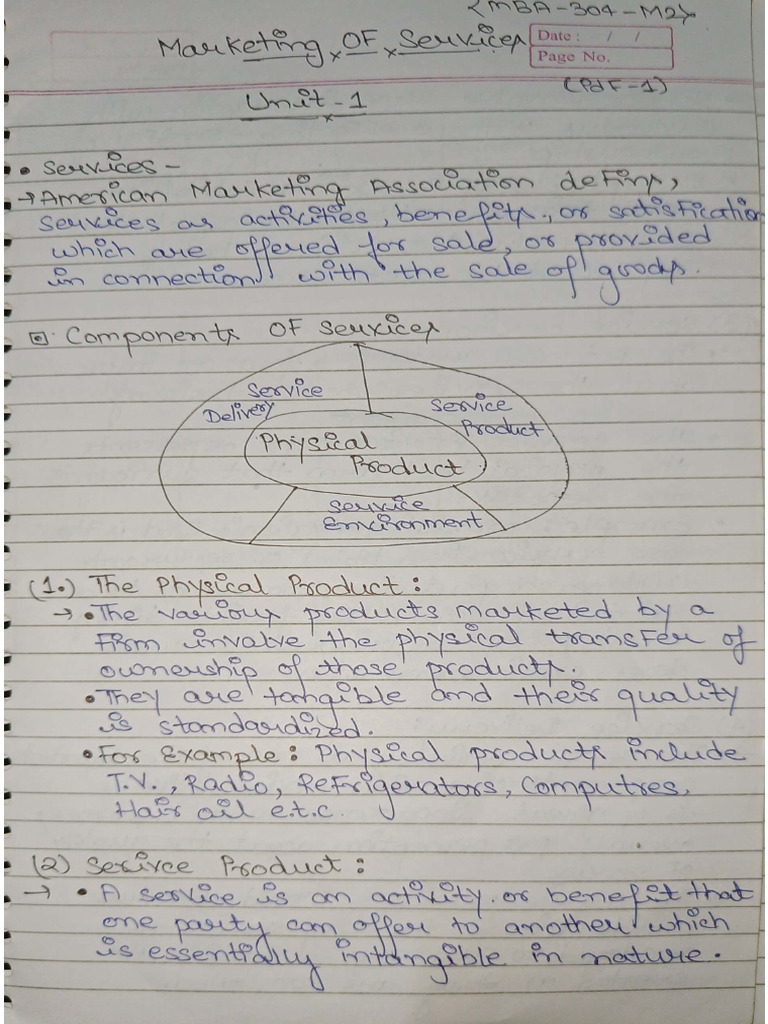 <MBA-304-M2>
Marketing OF Services
Date : / /
Page No.
(Pdf-1)
Unit-1
• Services -
→ American Marketing Association define,
services as activities, benefits, or satisfication
which are offered for sale, or provided
in connection with the sale of goods.
Components OF Services
Service
Delivery
Service
Product
Physical
Product
Service
Environment
(1.) The Physical Product :
→ • The various products marketed by a
firm involve the physical transfer of
ownership of those products.
• They are tangible and their quality
is standardized.
• For Example : Physical products include
T.V., Radio, Refrigerators, Computres,
Hair oil e.t.c.
(2) Serivce Product :
→ • A service is an activity or benefit that
one party can offer to another which
is essentially intangible in nature.